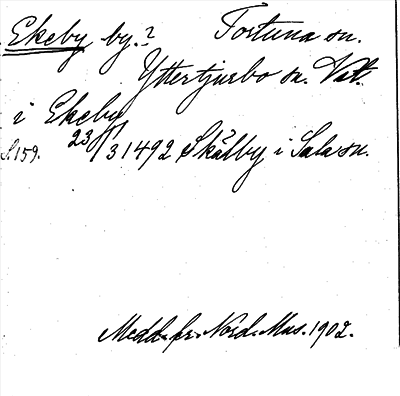 Ekeby by.? Fortuna sn.
Yttertjurbo sn. Vstl.
i Ekeby
S. 159. 23/3 1492 Skålby i Sala sn.
Medd. fr. Nord. Mus. 1902.